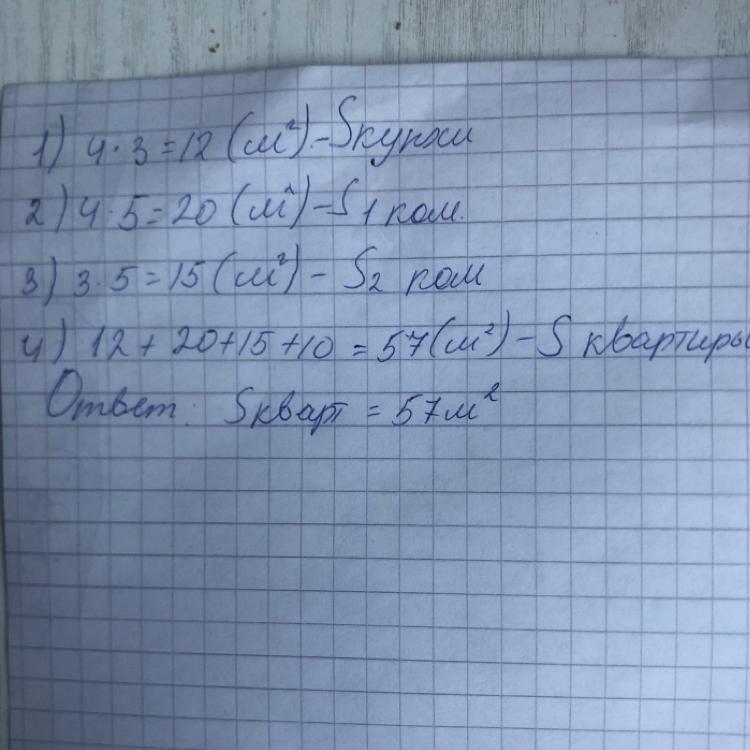 1) 4·3=12 (м²) - Sкухни
2) 4·5=20 (м²) - S1 ком.
3) 3·5=15 (м²) - S2 ком
4) 12+20+15+10=57(м²) - S квартиры
Ответ: Sкварт = 57м²